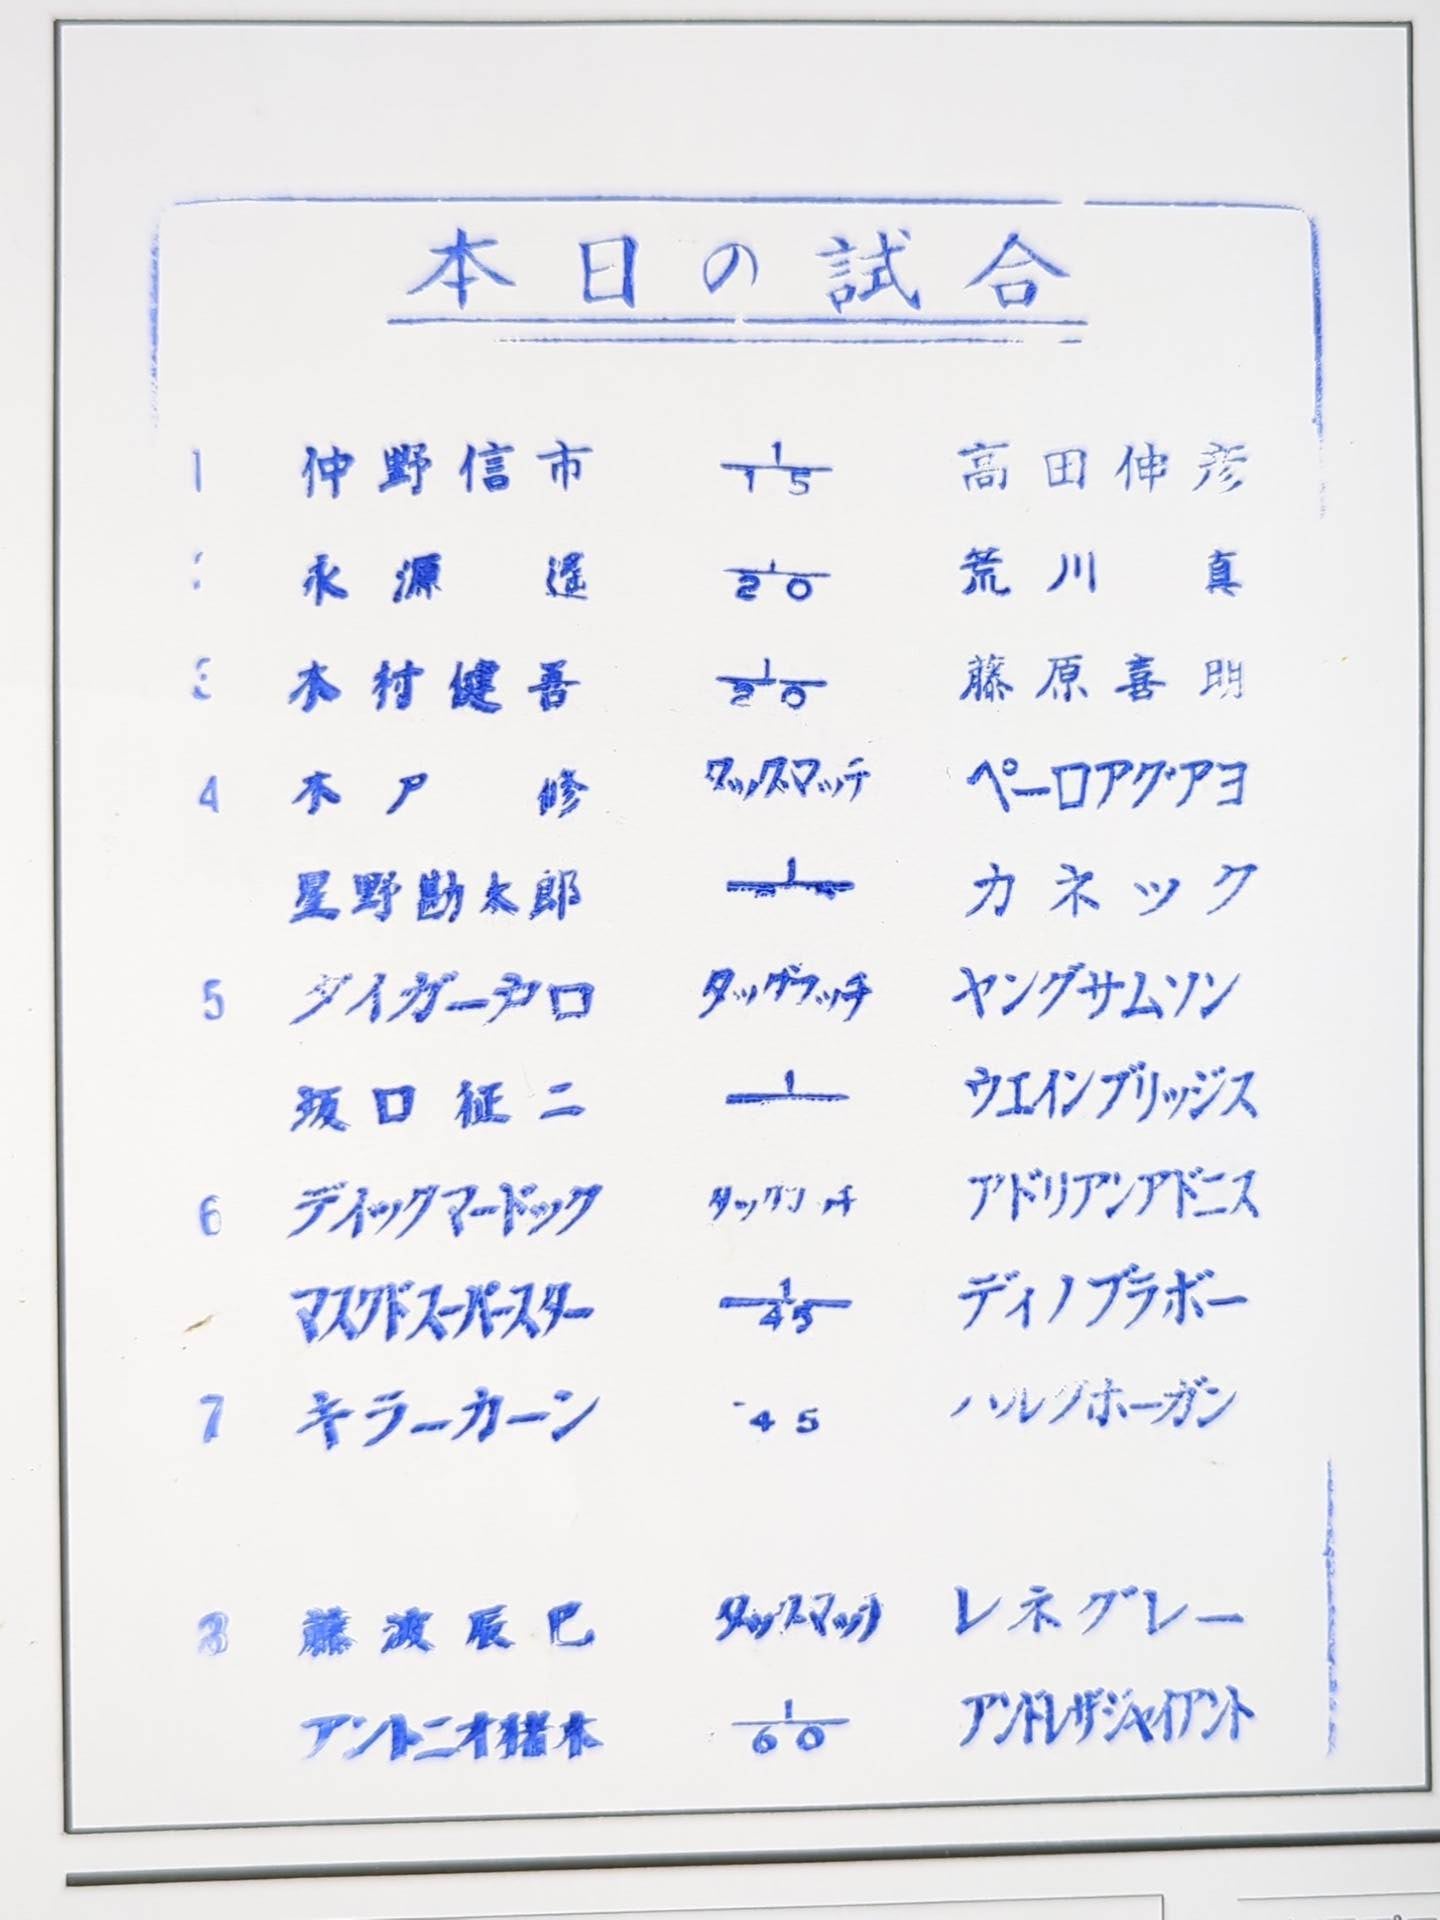 本日の試合
1 仲野信市 1/15 高田伸彦
永源遥 1/20 荒川真
3 木村健吾 1/20 藤原喜明
4 木戸修 タッグマッチ ペーロアグアヨ
星野勘太郎 1 カネック
5 タイガー戸口 タッグマッチ ヤングサムソン
坂口征二 1 ウエインブリッジス
6 ディックマードック タッグマッチ アドリアンアドニス
マスクドスーパースター 1/45 ディノブラボー
7 キラーカーン 45 ハルクホーガン
8 藤波辰巳 タッグマッチ レネグレー
アントニオ猪木 1/60 アンドレザジャイアント